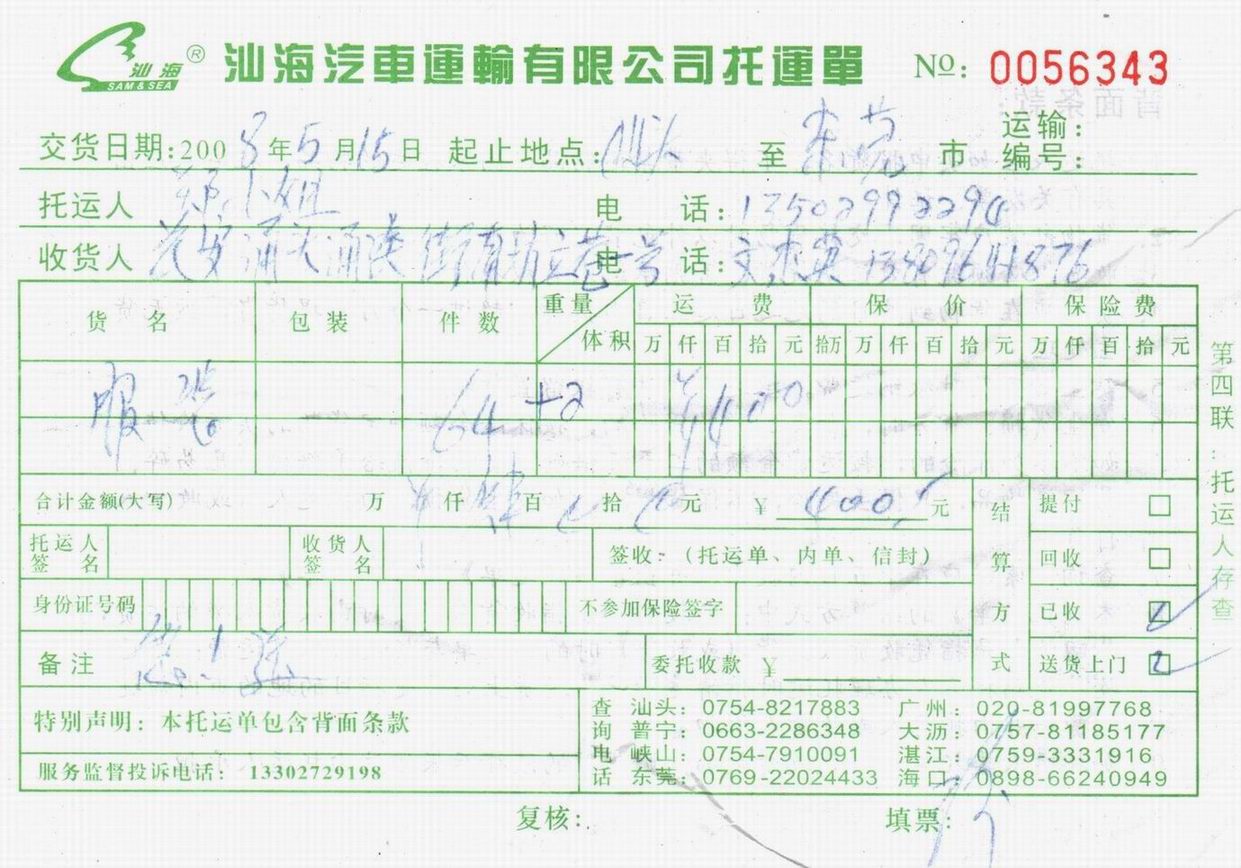 汕海® SAM & SEA
汕海汽車運輸有限公司托運單 No: 0056343
交货日期:2008年5月15日 起止地点:汕头 至 东莞 市 运输编号:
托运人 郑小姐 电 话:13502992294
收货人 电 话: 13809641876
货 名 包 装 件 数 重量 体积 运 费 保 价 保 险 费
万 仟 百 拾 元 拾万 万 仟 百 拾 元 万 仟 百 拾 元
服装 64+2 ¥
合计金额(大写) 万 仟 百 拾 元 ¥ 400 元
托运人签名 收货人签名 签收:(托运单、内单、信封)
身份证号码 不参加保险签字
备注 委托收款 ¥
结算方式
提付 □
回收 □
已收 □
送货上门 □
特别声明:本托运单包含背面条款
服务监督投诉电话: 13302729198
查询电话
汕头:0754-8217883 广州:020-81997768
普宁:0663-2286348 大沥:0757-81185177
峡山:0754-7910091 湛江:0759-3331916
东莞:0769-22024433 海口:0898-66240949
复核: 填票:
第四联:托运人存查
背面条款: